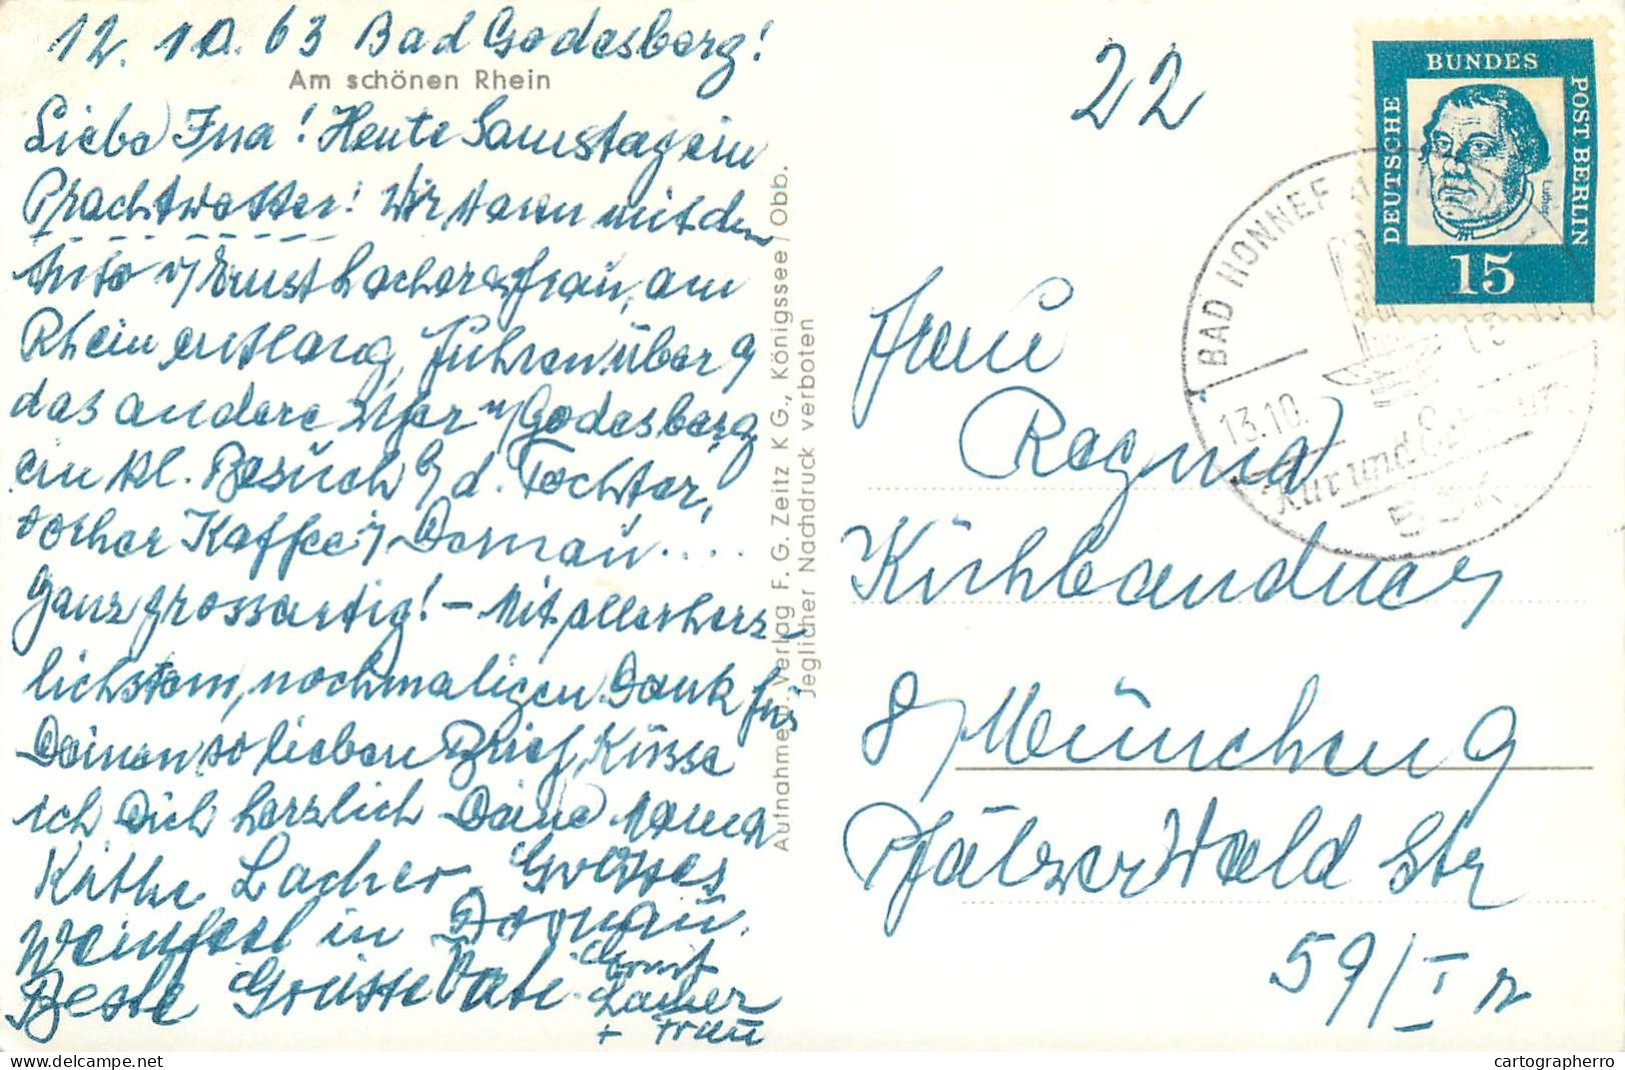 12. 10. 63 Bad Godesberg!
Am schönen Rhein
Liebe Ina! Heute Samstag ein
Prachtwetter! Wir waren mit dem
Auto v/ Ernst Lacher u. Frau, am
Rhein entlang, fuhren über
das andere Ufer n/ Godesberg
ein kl. Besuch d. Tochter,
vorher Kaffee i/ Dornau....
Ganz grossartig! – Mit allerherz-
lichstem, nochmaligen Dank für
Deinen so lieben Brief, Küsse
ich Dich herzlich Deine Mama
Käthe Lacher. Grosses
Weinfest in Dornau.
Beste Grüsse Vati Ernst
Lacher
+ Frau
Aufnahme u. Verlag F. G. Zeitz KG., Königssee/Obb.
Jeglicher Nachdruck verboten
22
DEUTSCHE BUNDES POST BERLIN
Luther
15
BAD HONNEF
13.10.
Kur und
Frau
Regina
8/ München 9
Pfälzer Wald Str
59/I r
cartographerro